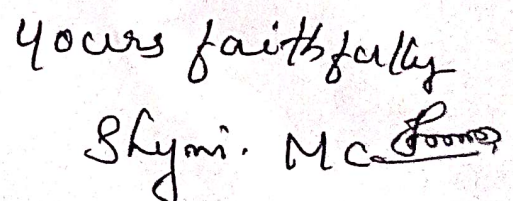 Yours faithfully
Shymi. M C.